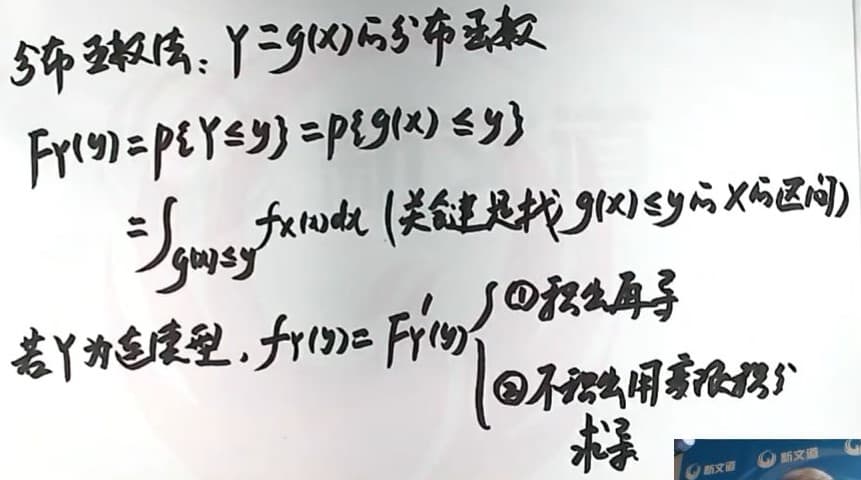 分布函数法：Y=g(x)的分布函数
F_Y(y)=P{Y≤y}=P{g(x)≤y}
=∫_{g(x)≤y} f_X(x)dx (关键是找g(x)≤y的X的区间)
若Y为连续型，f_Y(y)=F_Y'(y) {①积出再导
②不积出用变限积分
求导
新文道 新文道